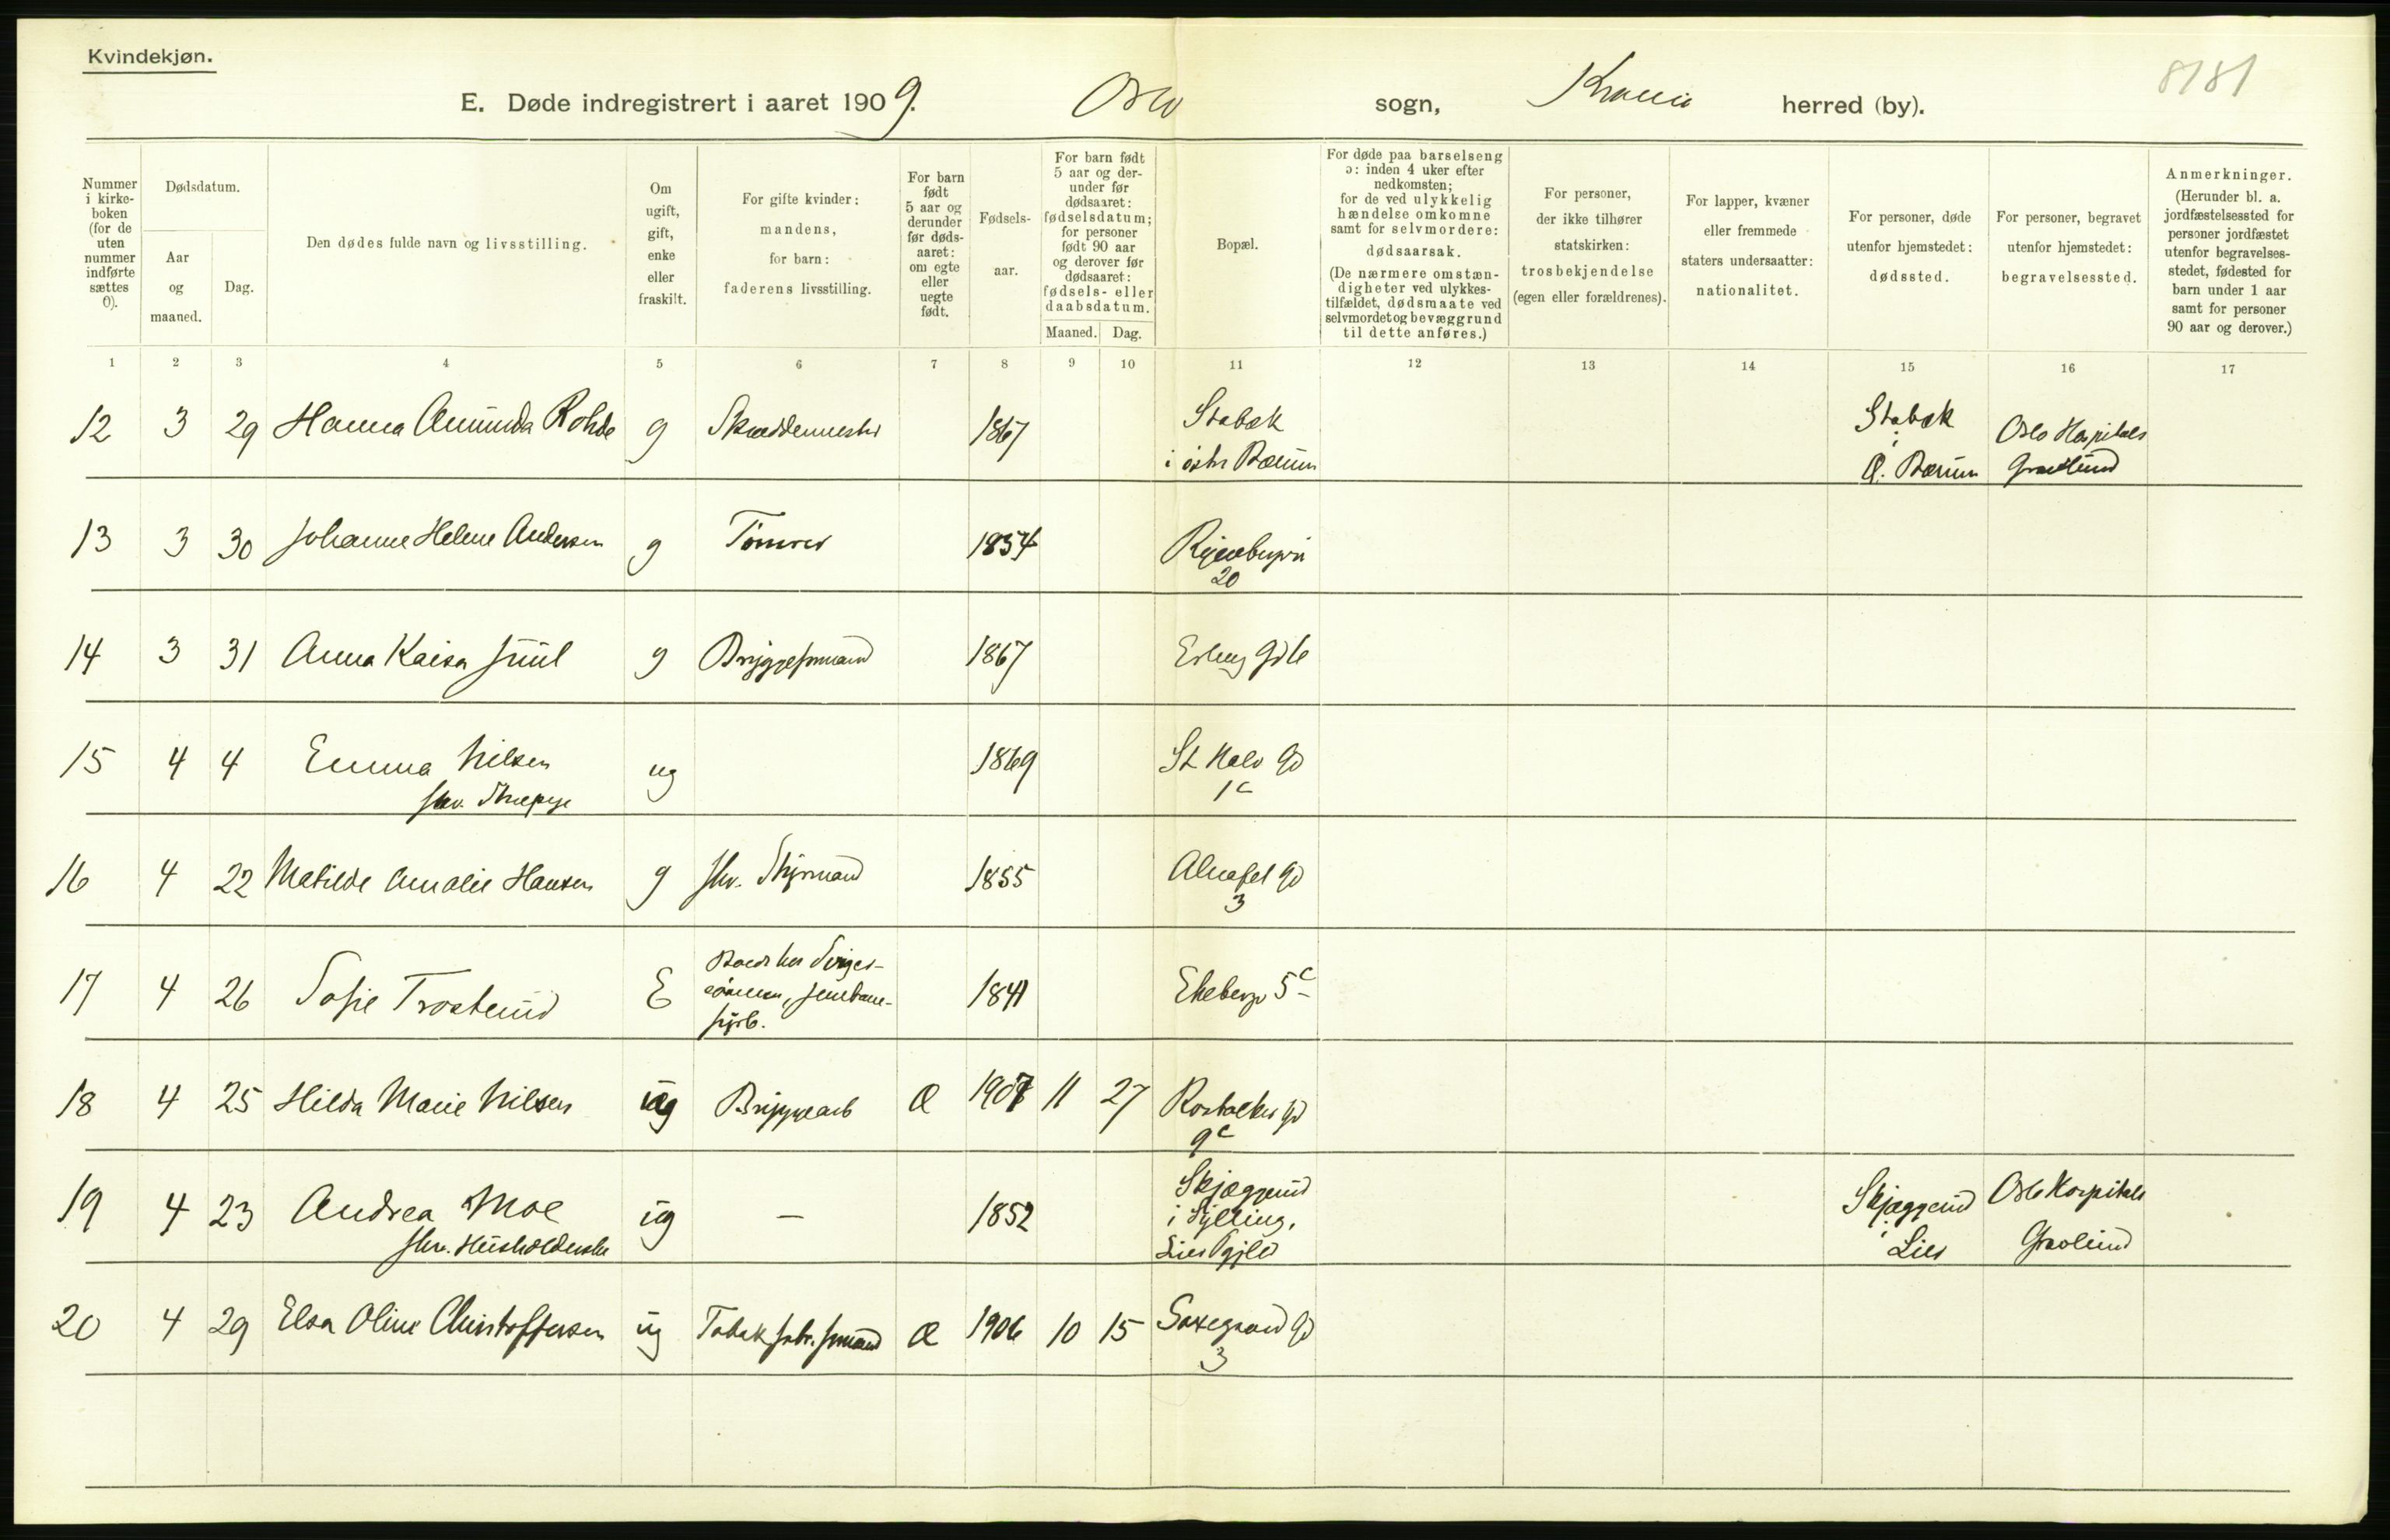 Kvindekjøn.
8181
E. Døde indregistrert i aaret 1909. Oslo sogn, Krania herred (by).
Nummer i kirkeboken (for de uten nummer indførte sættes 0).
Dødsdatum.
Aar og maaned.
Dag.
Den dødes fulde navn og livsstilling.
Om ugift, gift, enke eller fraskilt.
For gifte kvinder: mandens, for barn: faderens livsstilling.
For barn født 5 aar og derunder før dødsaaret: om egte eller uegte født.
Fødselsaar.
For barn født 5 aar og derunder før dødsaaret: fødselsdatum; for personer født 90 aar og derover før dødsaaret: fødsels- eller daabsdatum.
Maaned. Dag.
Bopæl.
For døde paa barselseng ɔ: inden 4 uker efter nedkomsten; for de ved ulykkelig hændelse omkomne samt for selvmordere: dødsaarsak. (De nærmere omstændigheter ved ulykkestilfældet, dødsmaate ved selvmordet og bevæggrund til dette anføres.)
For personer, der ikke tilhører statskirken: trosbekjendelse (egen eller forældrenes).
For lapper, kvæner eller fremmede staters undersaatter: nationalitet.
For personer, døde utenfor hjemstedet: dødssted.
For personer, begravet utenfor hjemstedet: begravelsessted.
Anmerkninger. (Herunder bl. a. jordfæstelsessted for personer jordfæstet utenfor begravelsesstedet, fødested for barn under 1 aar samt for personer 90 aar og derover.)
1 2 3 4 5 6 7 8 9 10 11 12 13 14 15 16 17
12 3 29 Hanna Amunda Rohde g Skræddermester 1867 Stabæk i østr Bærum Stabæk i Ø. Bærum Oslo Hospitals Gravlund
13 3 30 Johanne Helene Andersen g Tømrer 1854 20
14 3 31 Anna Kaisa Juul g Bryggeformand 1867 Erling
15 4 4 Emma Nilsen ug 1869 St Halv Gd
1c
16 4 22 Matilde Amalie Hansen g fhv. Styrmand 1855 Alnafet Gd
3
17 4 26 Sofie Trosterud E 1841 Ekebergv 5c
18 4 25 Hilda Marie Nilsen ug Bryggearb Æ 1907 11 27 Rostocker Gd
9c
19 4 23 Andrea Moe ug — 1852 Skjæggerud i Sylling, Lier Skjæggerud i Lier Oslo Hospitals Gravlund
fhv. Husholderske
20 4 29 Elsa Oline Christoffersen ug Tobakfabr. formand Æ 1906 10 15 Saxegaard Gd
3